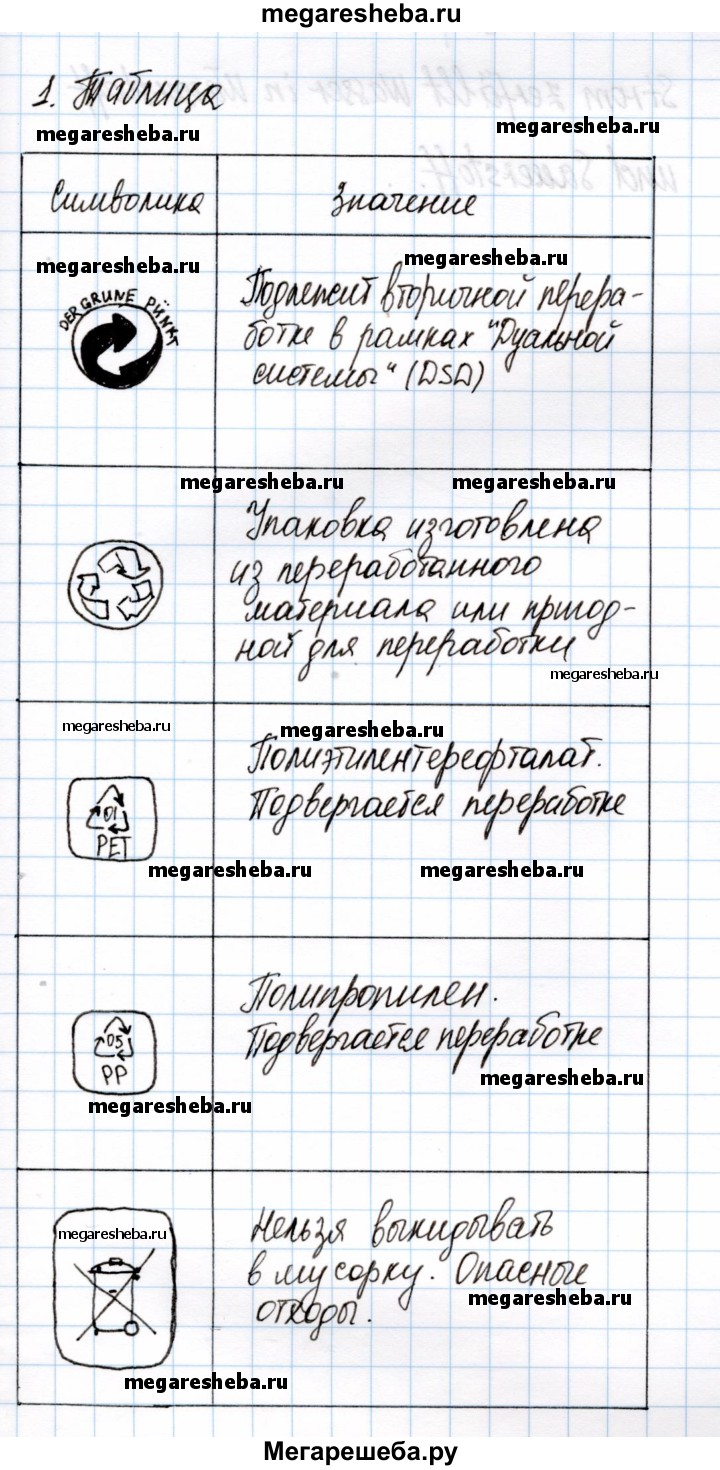 megaresheba.ru
1. Таблица
megaresheba.ru megaresheba.ru
Символика Значение
megaresheba.ru megaresheba.ru
DER GRUNE PÜNKT
Подлежит вторичной перера-
ботке в рамках "Дуальной
системы" (DSD)
megaresheba.ru megaresheba.ru
Упаковка изготовлена
из переработанного
материала или пригод-
ной для переработки
megaresheba.ru
megaresheba.ru megaresheba.ru
01
PET
Полиэтилентерефталат.
Подвергается переработке
megaresheba.ru megaresheba.ru
05
PP
Полипропилен.
Подвергается переработке
megaresheba.ru
megaresheba.ru
megaresheba.ru
Нельзя выкидывать
в мусорку. Опасные
отходы.
megaresheba.ru
megaresheba.ru
Мегарешеба.ру